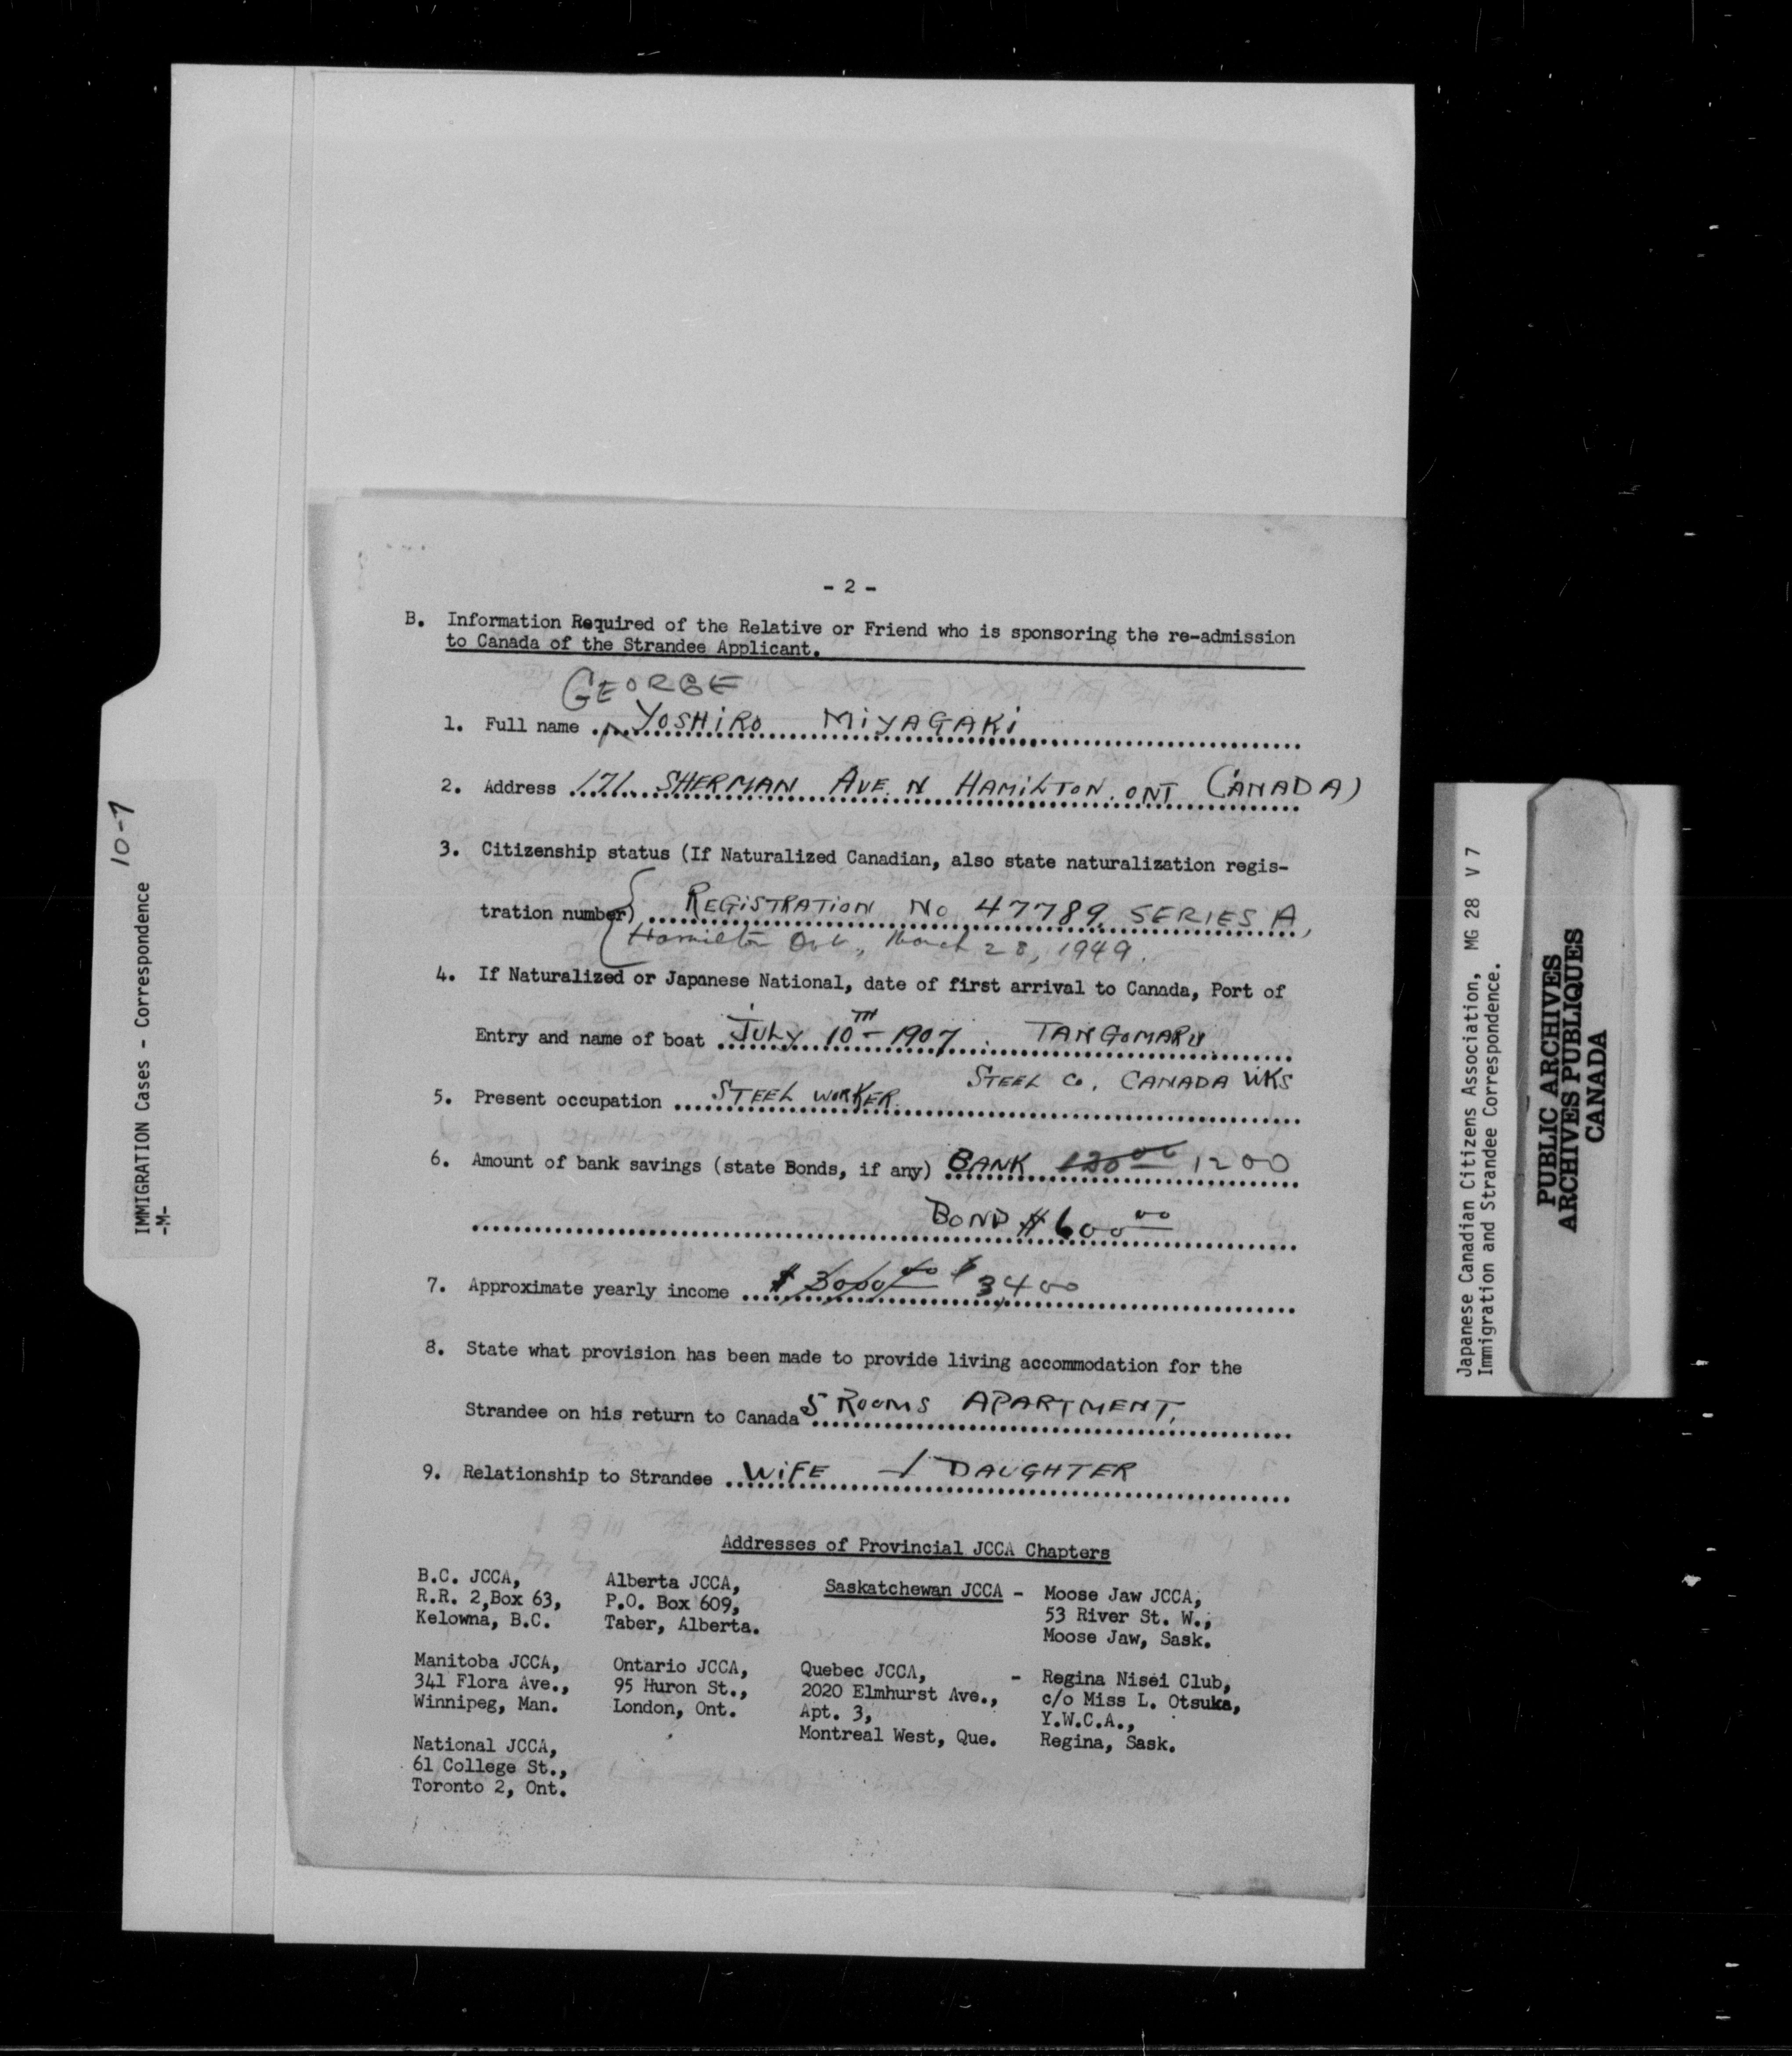 - 2 -
B. Information Required of the Relative or Friend who is sponsoring the re-admission
to Canada of the Strandee Applicant.
GEORGE
1. Full name YOSHIRO MIYAGAKI
2. Address 171 SHERMAN AVE. N HAMILTON. ONT (CANADA)
3. Citizenship status (If Naturalized Canadian, also state naturalization regis-
tration number) REGISTRATION No 47789 SERIES A,
Hamilton Ont., March 28, 1949.
4. If Naturalized or Japanese National, date of first arrival to Canada, Port of
Entry and name of boat JULY 10TH - 1907 TANGOMARU
STEEL Co. CANADA WKS
5. Present occupation STEEL WORKER
6. Amount of bank savings (state Bonds, if any) BANK 1200
BOND $600 00
7. Approximate yearly income $ 3000 00 $ 3,400
8. State what provision has been made to provide living accommodation for the
Strandee on his return to Canada 5 ROOMS APARTMENT.
9. Relationship to Strandee WIFE - 1 DAUGHTER
Addresses of Provincial JCCA Chapters
B.C. JCCA,
R.R. 2,Box 63,
Kelowna, B.C.
Alberta JCCA,
P.O. Box 609,
Taber, Alberta.
Saskatchewan JCCA - Moose Jaw JCCA,
53 River St. W.,
Moose Jaw, Sask.
Manitoba JCCA,
341 Flora Ave.,
Winnipeg, Man.
Ontario JCCA,
95 Huron St.,
London, Ont.
Quebec JCCA,
2020 Elmhurst Ave.,
Apt. 3,
Montreal West, Que.
- Regina Nisei Club,
c/o Miss L. Otsuka,
Y.W.C.A.,
Regina, Sask.
National JCCA,
61 College St.,
Toronto 2, Ont.
IMMIGRATION Cases - Correspondence 10-7
-M-
Japanese Canadian Citizens Association, MG 28 V 7
Immigration and Strandee Correspondence.
PUBLIC ARCHIVES
ARCHIVES PUBLIQUES
CANADA